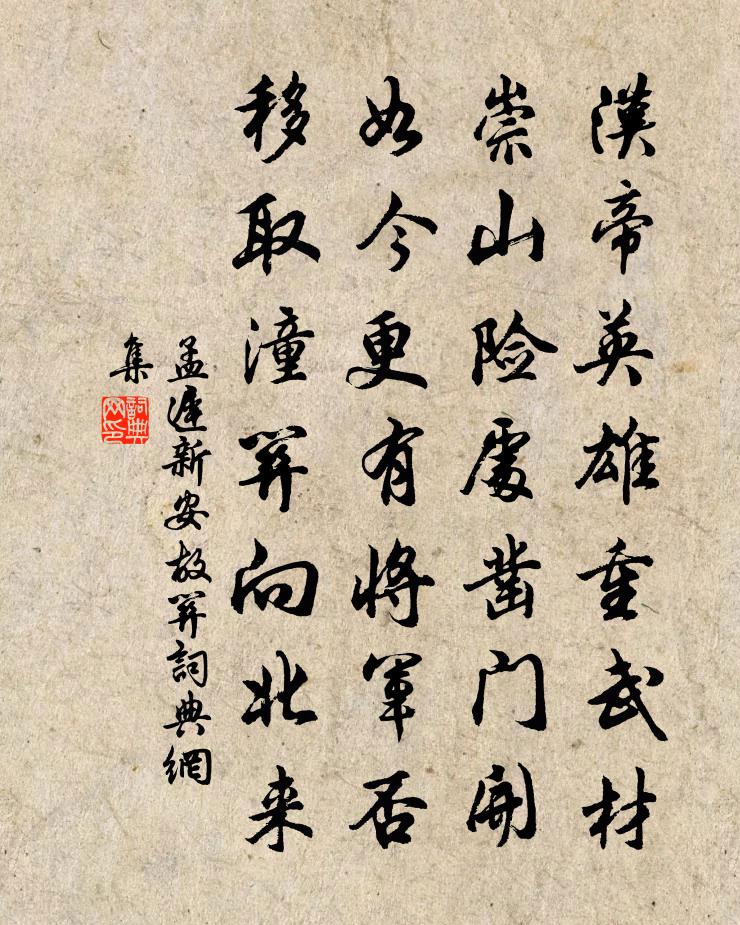 漢帝英雄重武材
崇山险處凿门開
如今更有將軍否
移取潼関向北来
孟遲新安故関詞典網
集
詞典
网印